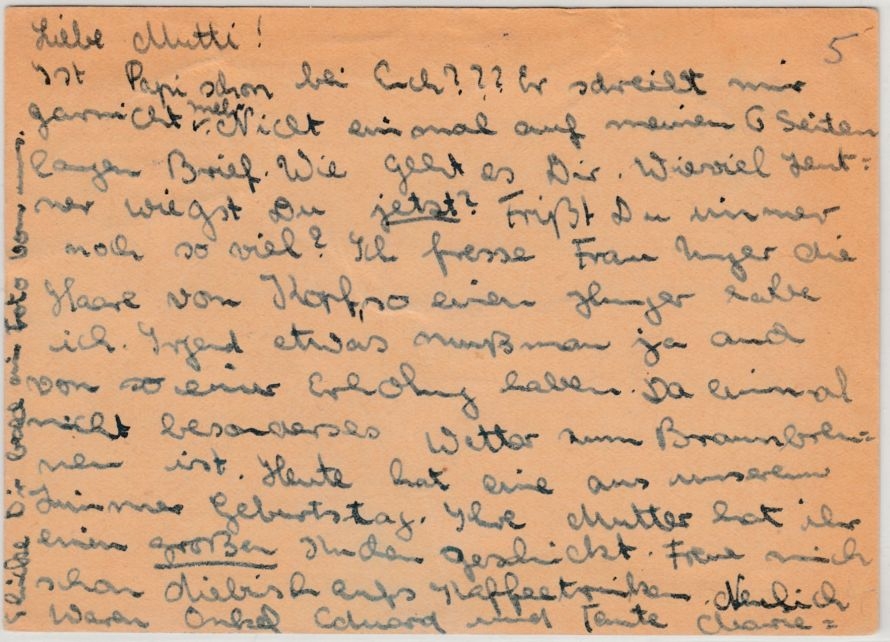 5
Liebe Mutti!
Ist Papi schon bei Euch??? Er schreibt mir
garnicht mehr. Nicht einmal auf meinen 6 Seiten
langen Brief. Wie geht es Dir. Wieviel Zent=
ner wiegst Du jetzt? Frißt Du immer
noch so viel? Ich fresse Frau Unger die
Haare vom Kopf, so einen Hunger habe
ich. Irgend etwas muß man ja auch
von so einer Erholung haben. Da einmal
nicht besonderses Wetter zum Braunbren=
nen ist. Heute hat eine aus unserem
Zimmer Geburtstag. Ihre Mutter hat ihr
einen großen Kuchen geschickt. Freue mich
schon diebisch aufs Kaffeetrinken. Neulich
waren Onkel Eduard und Tante Marie=
schicke Dir bald ein Foto von mir.